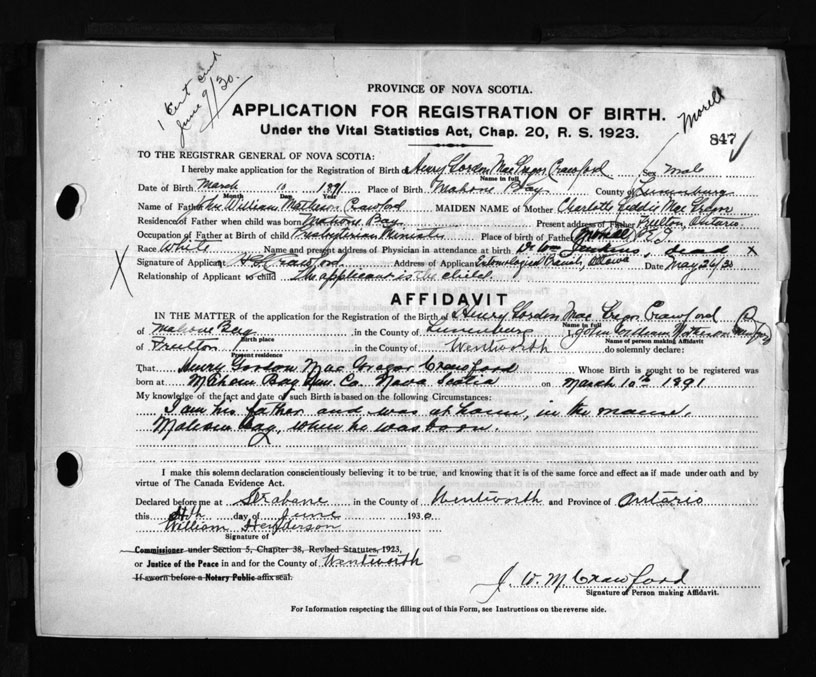 1 Cert
June 9/30.
PROVINCE OF NOVA SCOTIA.
APPLICATION FOR REGISTRATION OF BIRTH.
Under the Vital Statistics Act, Chap. 20, R. S. 1923.
Morell
847
TO THE REGISTRAR GENERAL OF NOVA SCOTIA:
I hereby make application for the Registration of Birth of Henry Gordon MacGregor Crawford Sex male
Name in full
Date of Birth March 10 1891 Place of Birth Mahone Bay County of Lunenburg
Month Day Year
Name of Father John William Matheson Crawford MAIDEN NAME of Mother Charlotte MacGregor
Residence of Father when child was born Mahone Bay Present address of Father Ontario
Occupation of Father at Birth of child Presbyterian Minister Place of birth of Father
Race White Name and present address of Physician in attendance at birth Dr. dead x
Signature of Applicant Crawford Address of Applicant Entomological Branch, Ottawa Date May 26/30
Relationship of Applicant to child The applicant is the child
X
AFFIDAVIT
IN THE MATTER of the application for the Registration of the Birth of Henry Gordon MacGregor Crawford
Name in full
of Mahone Bay, in the County of Lunenburg I, John William
Birth place Name of person making Affidavit
of in the County of Wentworth do solemnly declare:
Present residence
That Henry Gordon MacGregor Crawford Whose Birth is sought to be registered was
born at Mahone Bay Lun. Co. Nova Scotia on March 10th 1891
My knowledge of the fact and date of such Birth is based on the following Circumstances:
I am his father and was at home, in the manse,
Mahone Bay, when he was born.
I make this solemn declaration conscientiously believing it to be true, and knowing that it is of the same force and effect as if made under oath and by
virtue of The Canada Evidence Act.
Declared before me at Strabane in the County of Wentworth and Province of Ontario
this day of June 1930
William Henderson
Signature of
Commissioner under Section 5, Chapter 38, Revised Statutes, 1923,
or Justice of the Peace in and for the County of Wentworth
If sworn before a Notary Public affix seal.
J. W. M. Crawford
Signature of Person making Affidavit.
For Information respecting the filling out of this Form, see Instructions on the reverse side.